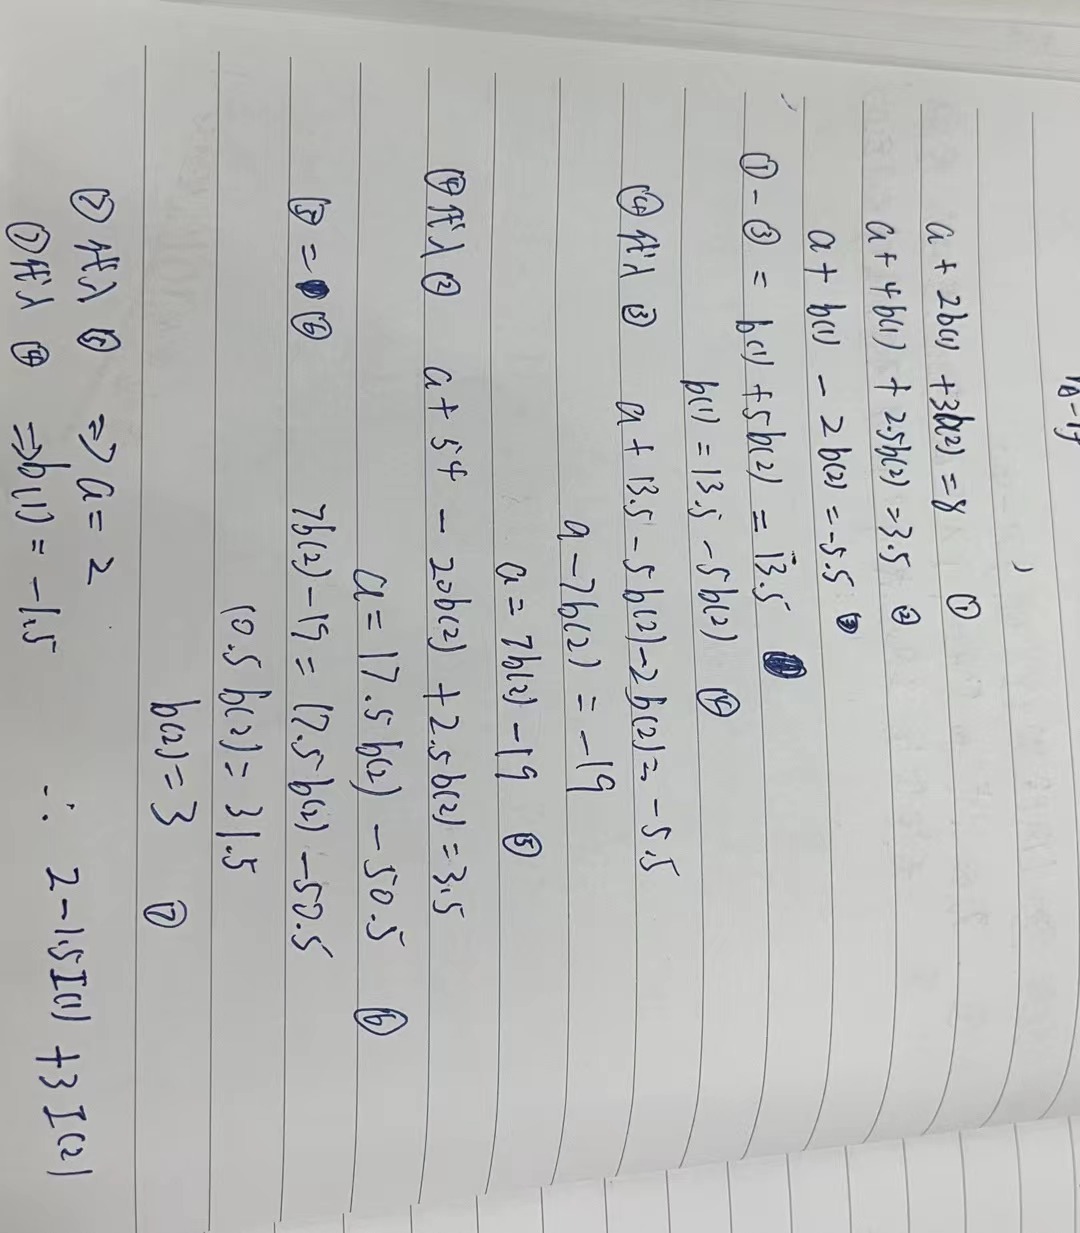 a + 2b(1) + 3b(2) = 8 ①
a + 4b(1) + 2.5b(2) = 3.5 ②
a + b(1) - 2b(2) = -5.5 ③
① - ③ = b(1) + 5b(2) = 13.5
b(1) = 13.5 - 5b(2) ④
④ 代入 ③ a + 13.5 - 5b(2) - 2b(2) = -5.5
a - 7b(2) = -19
a = 7b(2) - 19 ⑤
④ 代入 ② a + 54 - 20b(2) + 2.5b(2) = 3.5
a = 17.5b(2) - 50.5 ⑥
⑤ = ⑥ 7b(2) - 19 = 17.5b(2) - 50.5
10.5b(2) = 31.5
b(2) = 3 ⑦
⑦ 代入 ⑤ => a = 2
⑦ 代入 ④ => b(1) = -1.5 ∴ 2 - 1.5I(1) + 3I(2)